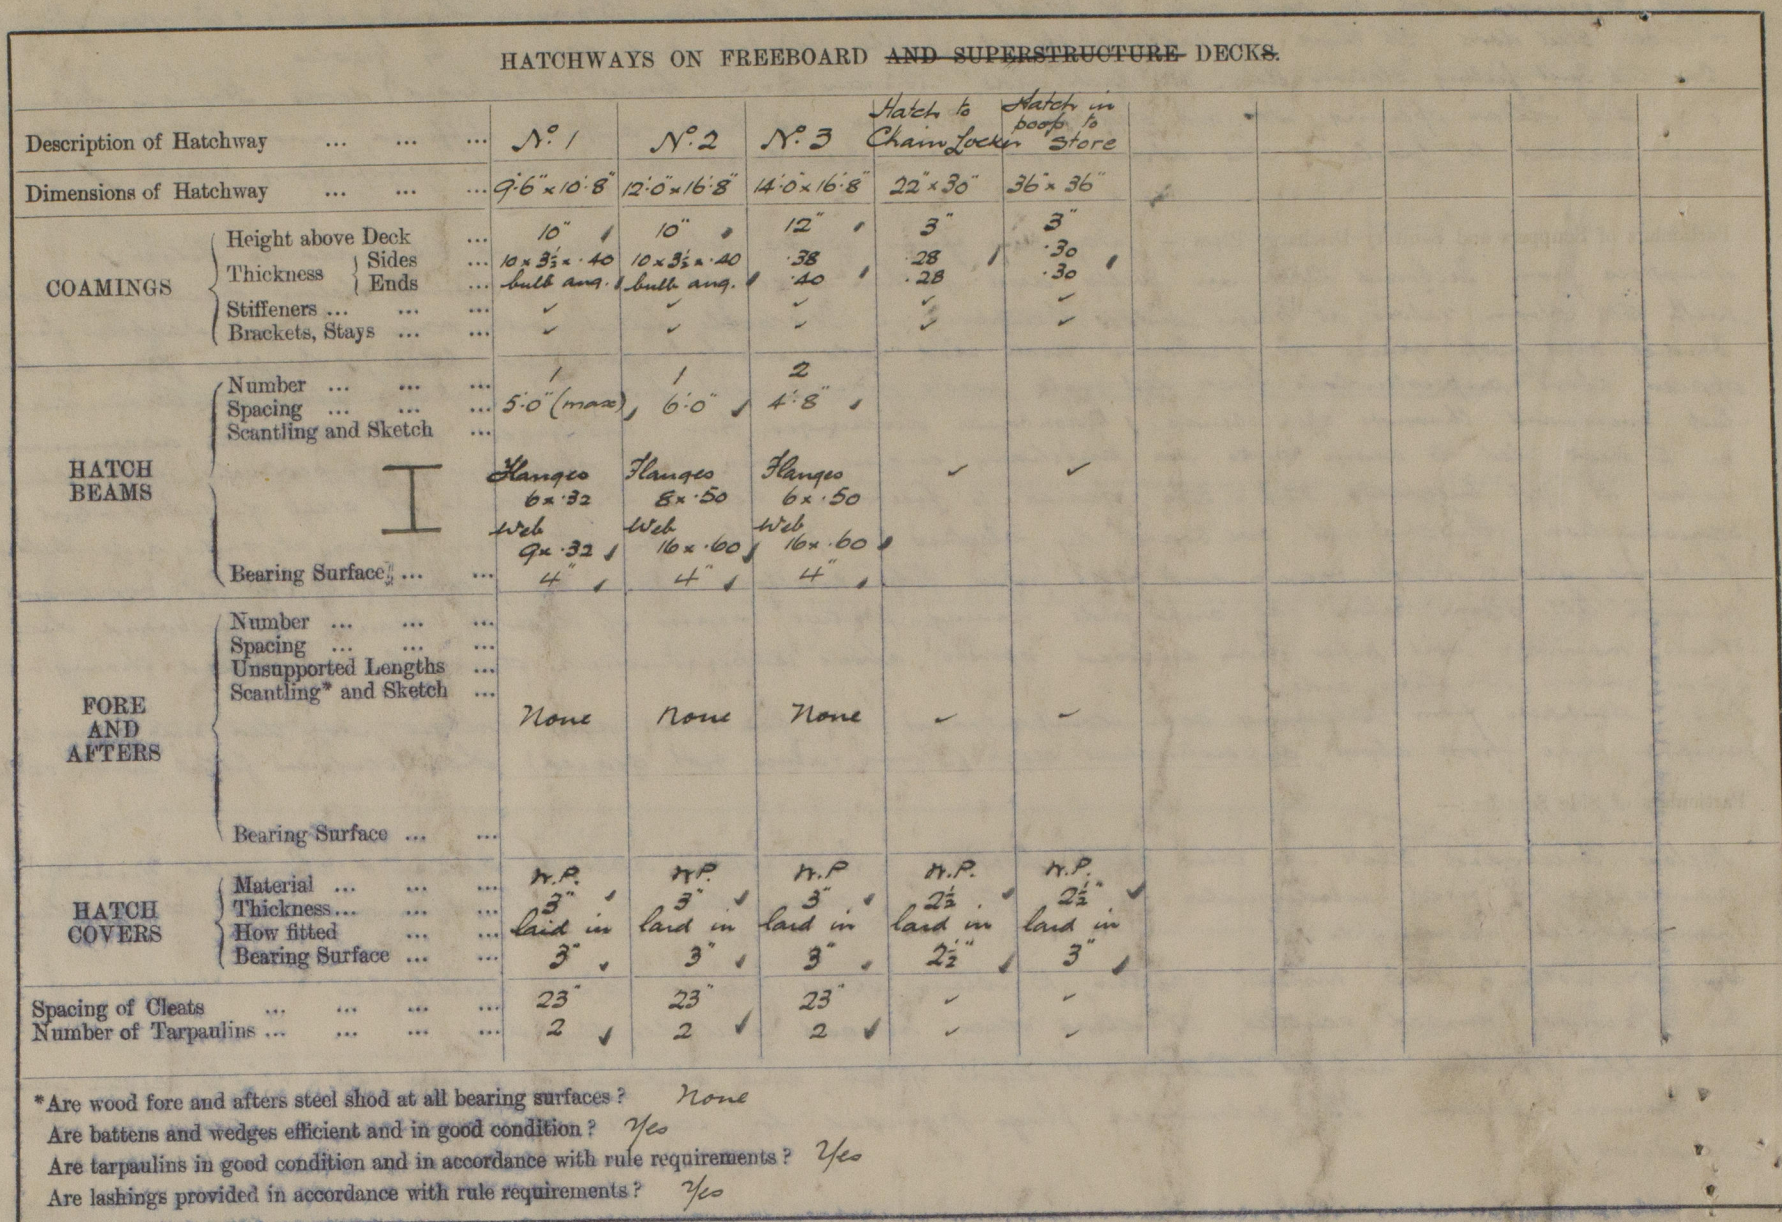 HATCHWAYS ON FREEBOARD AND SUPERSTRUCTURE DECKS.
Description of Hatchway ... ... ... Nº 1 Nº 2 Nº 3 Hatch to Chain Locker Hatch in poop to store
Dimensions of Hatchway ... ... ... 9'.6" x 10'.8" 12'.0" x 16'.8" 14'.0" x 16'.8" 22" x 30" 36" x 36"
COAMINGS
Height above Deck ... 10" 10" 12" 3" 3"
Thickness
Sides ... 10 x 3½ x .40 10 x 3½ x .40 .38 .28 .30
Ends ... bulb ang. bulb ang. .40 .28 .30
Stiffeners ... ... ... ✓ ✓ ✓ ✓ ✓
Brackets, Stays ... ... ✓ ✓ ✓ ✓ ✓
HATCH BEAMS
Number ... ... ... 1 1 2
Spacing ... ... ... 5'.0" (max) 6'.0" 4'.8"
Scantling and Sketch ...
Flanges Flanges Flanges ✓ ✓
6 x .32 8 x .50 6 x .50
Web Web Web
9 x .32 16 x .60 16 x .60
Bearing Surface ... ... 4" 4" 4"
FORE AND AFTERS
Number ... ... ...
Spacing ... ... ...
Unsupported Lengths ...
Scantling* and Sketch ...
None None None ✓ ✓
Bearing Surface ... ...
HATCH COVERS
Material ... ... ... W.P. W.P. W.P W.P. W.P.
Thickness... ... ... 3" 3" 3" 2½" 2½"
How fitted ... ... laid in laid in laid in laid in laid in
Bearing Surface ... ... 3" 3" 3" 2½" 3"
Spacing of Cleats ... ... ... ... 23" 23" 23" ✓ ✓
Number of Tarpaulins ... ... ... ... 2 2 2 ✓ ✓
*Are wood fore and afters steel shod at all bearing surfaces? None
Are battens and wedges efficient and in good condition? Yes
Are tarpaulins in good condition and in accordance with rule requirements? Yes
Are lashings provided in accordance with rule requirements? Yes